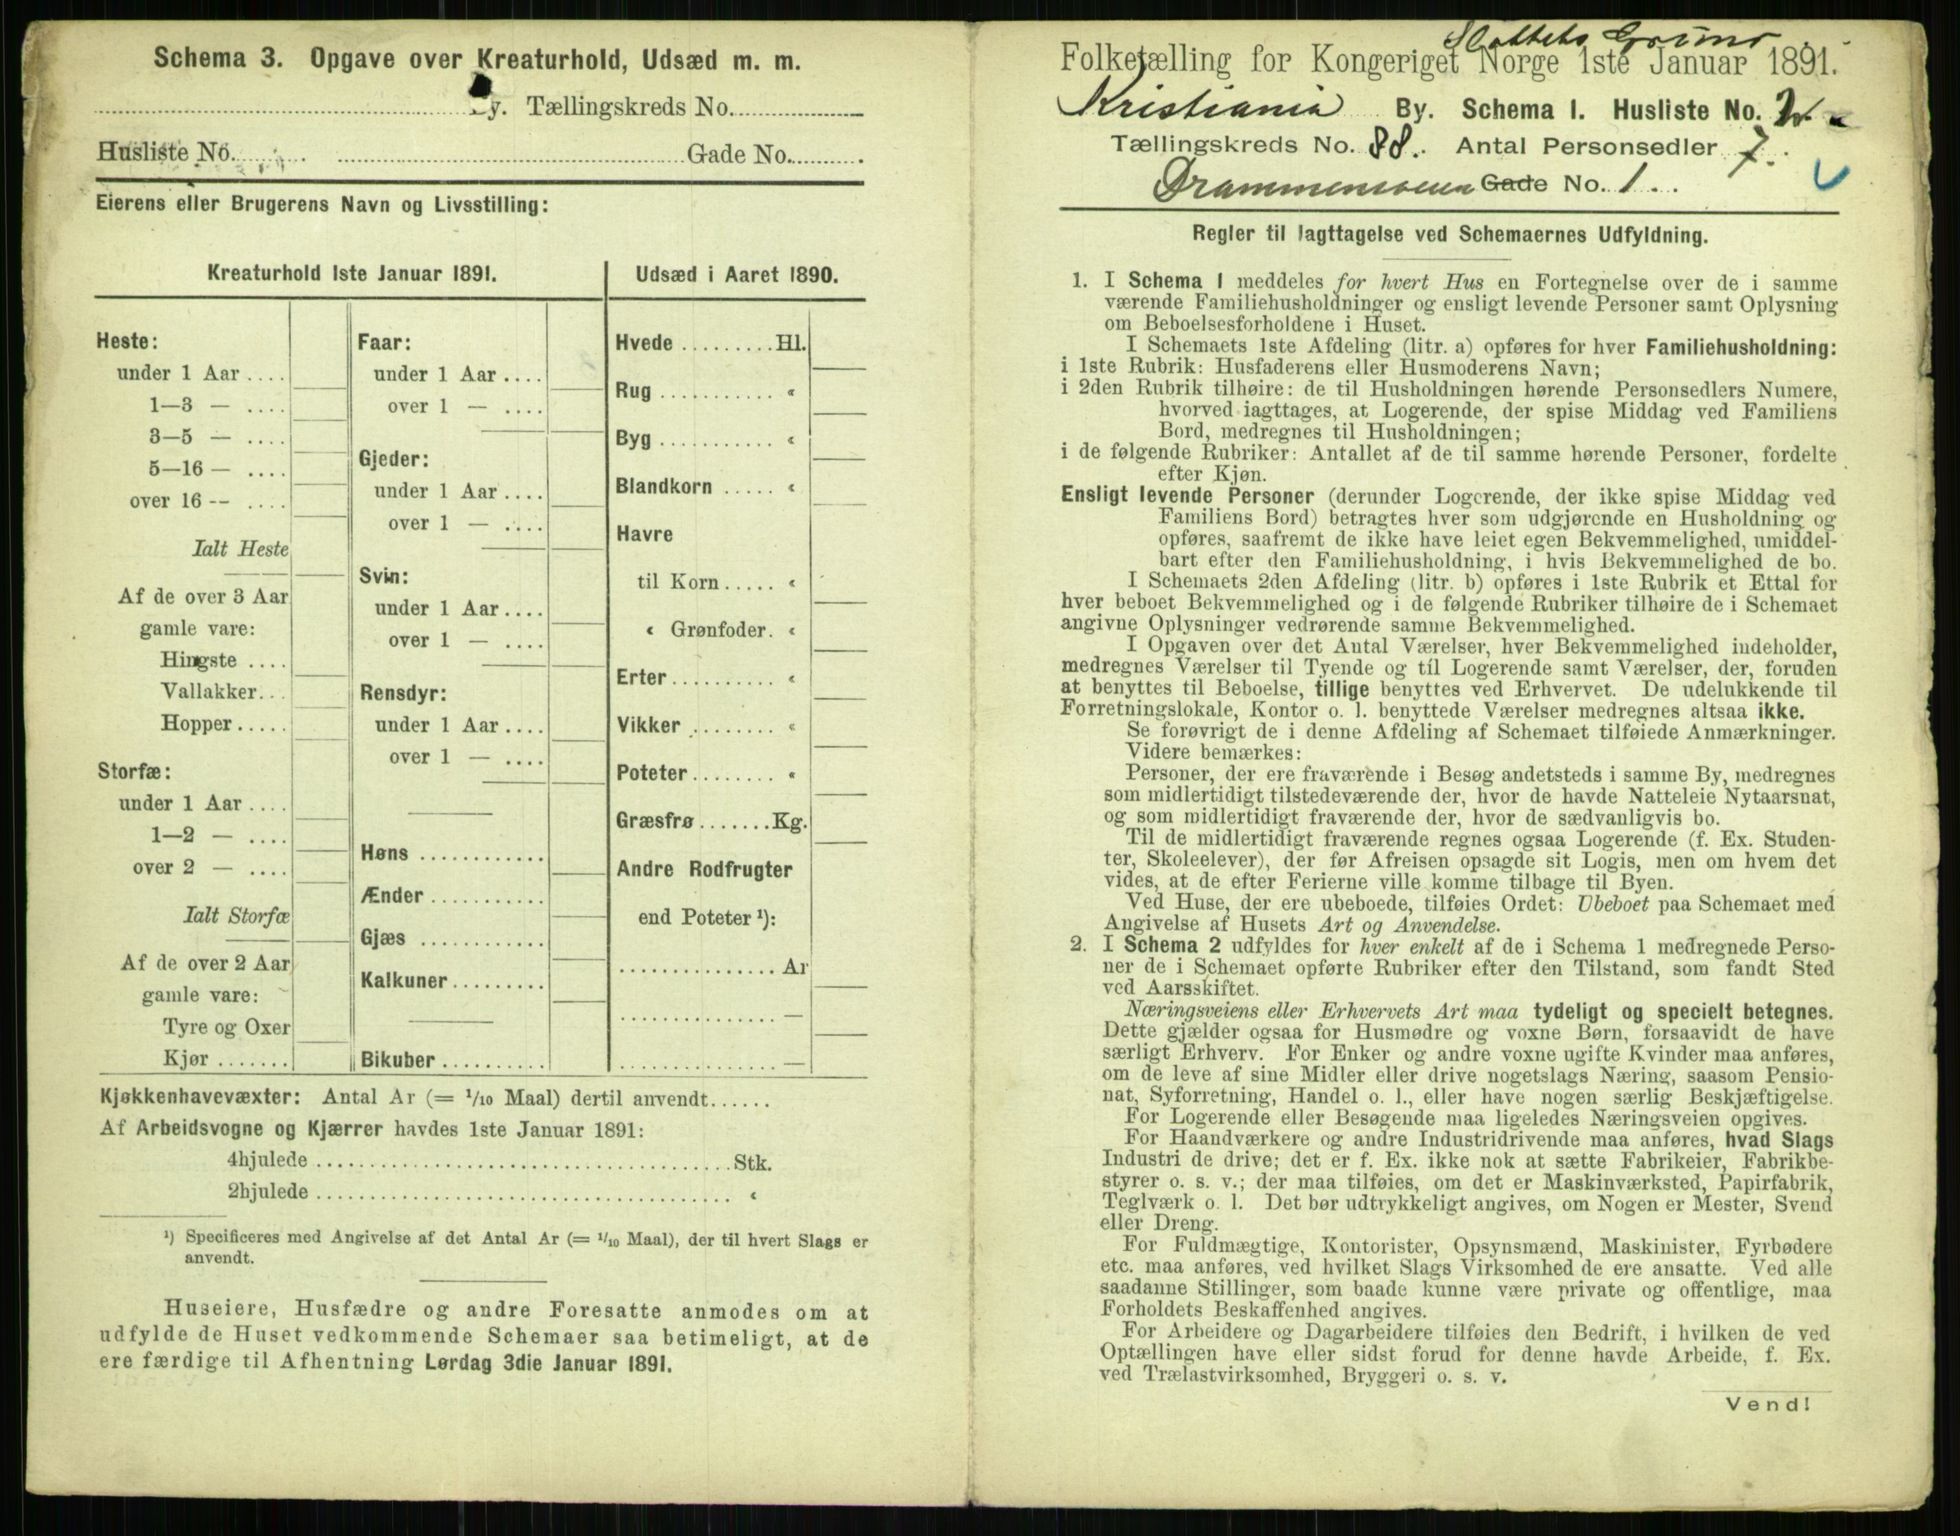 Schema 3. Opgave over Kreaturhold, Udsæd m. m.
By. Tællingskreds No.
Husliste No. Gade No.
Eierens eller Brugerens Navn og Livsstilling:
Kreaturhold 1ste Januar 1891.
Heste:
under 1 Aar ....
1—3 — ....
3—5 — ....
5—16 — ....
over 16 -- ....
Ialt Heste
Af de over 3 Aar
gamle vare:
Hingste ....
Vallakker...
Hopper.....
Storfæ:
under 1 Aar ....
1—2 — ....
over 2 — ....
Ialt Storfæ
Af de over 2 Aar
gamle vare:
Tyre og Oxer
Kjør .......
Faar:
under 1 Aar ....
over 1 — ....
Gjeder:
under 1 Aar ....
over 1 — ....
Svin:
under 1 Aar ....
over 1 — ....
Rensdyr:
under 1 Aar ....
over 1 — ....
Høns ............
Ænder ...........
Gjæs ............
Kalkuner.........
Bikuber ..........
Udsæd i Aaret 1890.
Hvede .........Hl.
Rug ........... «
Byg ........... «
Blandkorn ..... «
Havre
til Korn ..... «
« Grønfoder. «
Erter.......... «
Vikker ........ «
Poteter........ «
Græsfrø .......Kg.
Andre Rodfrugter
end Poteter ¹):
............... Ar
............... —
............... —
Kjøkkenhavevæxter: Antal Ar (= 1/10 Maal) dertil anvendt......
Af Arbeidsvogne og Kjærrer havdes 1ste Januar 1891:
4hjulede .......................................Stk.
2hjulede ....................................... «
¹) Specificeres med Angivelse af det Antal Ar (= 1/10 Maal), der til hvert Slags er
anvendt.
Huseiere, Husfædre og andre Foresatte anmodes om at
udfylde de Huset vedkommende Schemaer saa betimeligt, at de
ere færdige til Afhentning Lørdag 3die Januar 1891.
Slottets Grund
Folketælling for Kongeriget Norge 1ste Januar 1891.
Kristiania By. Schema 1. Husliste No.
Tællingskreds No. 88. Antal Personsedler 7.
Drammensveien Gade No. 1.
Regler til Iagttagelse ved Schemaernes Udfyldning.
1. I Schema 1 meddeles for hvert Hus en Fortegnelse over de i samme
værende Familiehusholdninger og ensligt levende Personer samt Oplysning
om Beboelsesforholdene i Huset.
I Schemaets 1ste Afdeling (litr. a) opføres for hver Familiehusholdning:
i 1ste Rubrik: Husfaderens eller Husmoderens Navn;
i 2den Rubrik tilhøire: de til Husholdningen hørende Personsedlers Numere,
hvorved iagttages, at Logerende, der spise Middag ved Familiens
Bord, medregnes til Husholdningen;
i de følgende Rubriker: Antallet af de til samme hørende Personer, fordelte
efter Kjøn.
Ensligt levende Personer (derunder Logerende, der ikke spise Middag ved
Familiens Bord) betragtes hver som udgjørende en Husholdning og
opføres, saafremt de ikke have leiet egen Bekvemmelighed, umiddel-
bart efter den Familiehusholdning, i hvis Bekvemmelighed de bo.
I Schemaets 2den Afdeling (litr. b) opføres i 1ste Rubrik et Ettal for
hver beboet Bekvemmelighed og i de følgende Rubriker tilhøire de i Schemaet
angivne Oplysninger vedrørende samme Bekvemmelighed.
I Opgaven over det Antal Værelser, hver Bekvemmelighed indeholder,
medregnes Værelser til Tyende og til Logerende samt Værelser, der, foruden
at benyttes til Beboelse, tillige benyttes ved Erhvervet. De udelukkende til
Forretningslokale, Kontor o. l. benyttede Værelser medregnes altsaa ikke.
Se forøvrigt de i denne Afdeling af Schemaet tilføiede Anmærkninger.
Videre bemærkes:
Personer, der ere fraværende i Besøg andetsteds i samme By, medregnes
som midlertidigt tilstedeværende der, hvor de havde Natteleie Nytaarsnat,
og som midlertidigt fraværende der, hvor de sædvanligvis bo.
Til de midlertidigt fraværende regnes ogsaa Logerende (f. Ex. Studen-
ter, Skoleelever), der før Afreisen opsagde sit Logis, men om hvem det
vides, at de efter Ferierne ville komme tilbage til Byen.
Ved Huse, der ere ubeboede, tilføies Ordet: Ubeboet paa Schemaet med
Angivelse af Husets Art og Anvendelse.
2. I Schema 2 udfyldes for hver enkelt af de i Schema 1 medregnede Perso-
ner de i Schemaet opførte Rubriker efter den Tilstand, som fandt Sted
ved Aarsskiftet.
Næringsveiens eller Erhvervets Art maa tydeligt og specielt betegnes.
Dette gjælder ogsaa for Husmødre og voxne Børn, forsaavidt de have
særligt Erhverv. For Enker og andre voxne ugifte Kvinder maa anføres,
om de leve af sine Midler eller drive nogetslags Næring, saasom Pensio-
nat, Syforretning, Handel o. l., eller have nogen særlig Beskjæftigelse.
For Logerende eller Besøgende maa ligeledes Næringsveien opgives.
For Haandværkere og andre Industridrivende maa anføres, hvad Slags
Industri de drive; det er f. Ex. ikke nok at sætte Fabrikeier, Fabrikbe-
styrer o. s. v.; der maa tilføies, om det er Maskinværksted, Papirfabrik,
Teglværk o. l. Det bør udtrykkeligt angives, om Nogen er Mester, Svend
eller Dreng.
For Fuldmægtige, Kontorister, Opsynsmænd, Maskinister, Fyrbødere
etc. maa anføres, ved hvilket Slags Virksomhed de ere ansatte. Ved alle
saadanne Stillinger, som baade kunne være private og offentlige, maa
Forholdets Beskaffenhed angives.
For Arbeidere og Dagarbeidere tilføies den Bedrift, i hvilken de ved
Optællingen have eller sidst forud for denne havde Arbeide, f. Ex.
ved Trælastvirksomhed, Bryggeri o. s. v.
Vend!